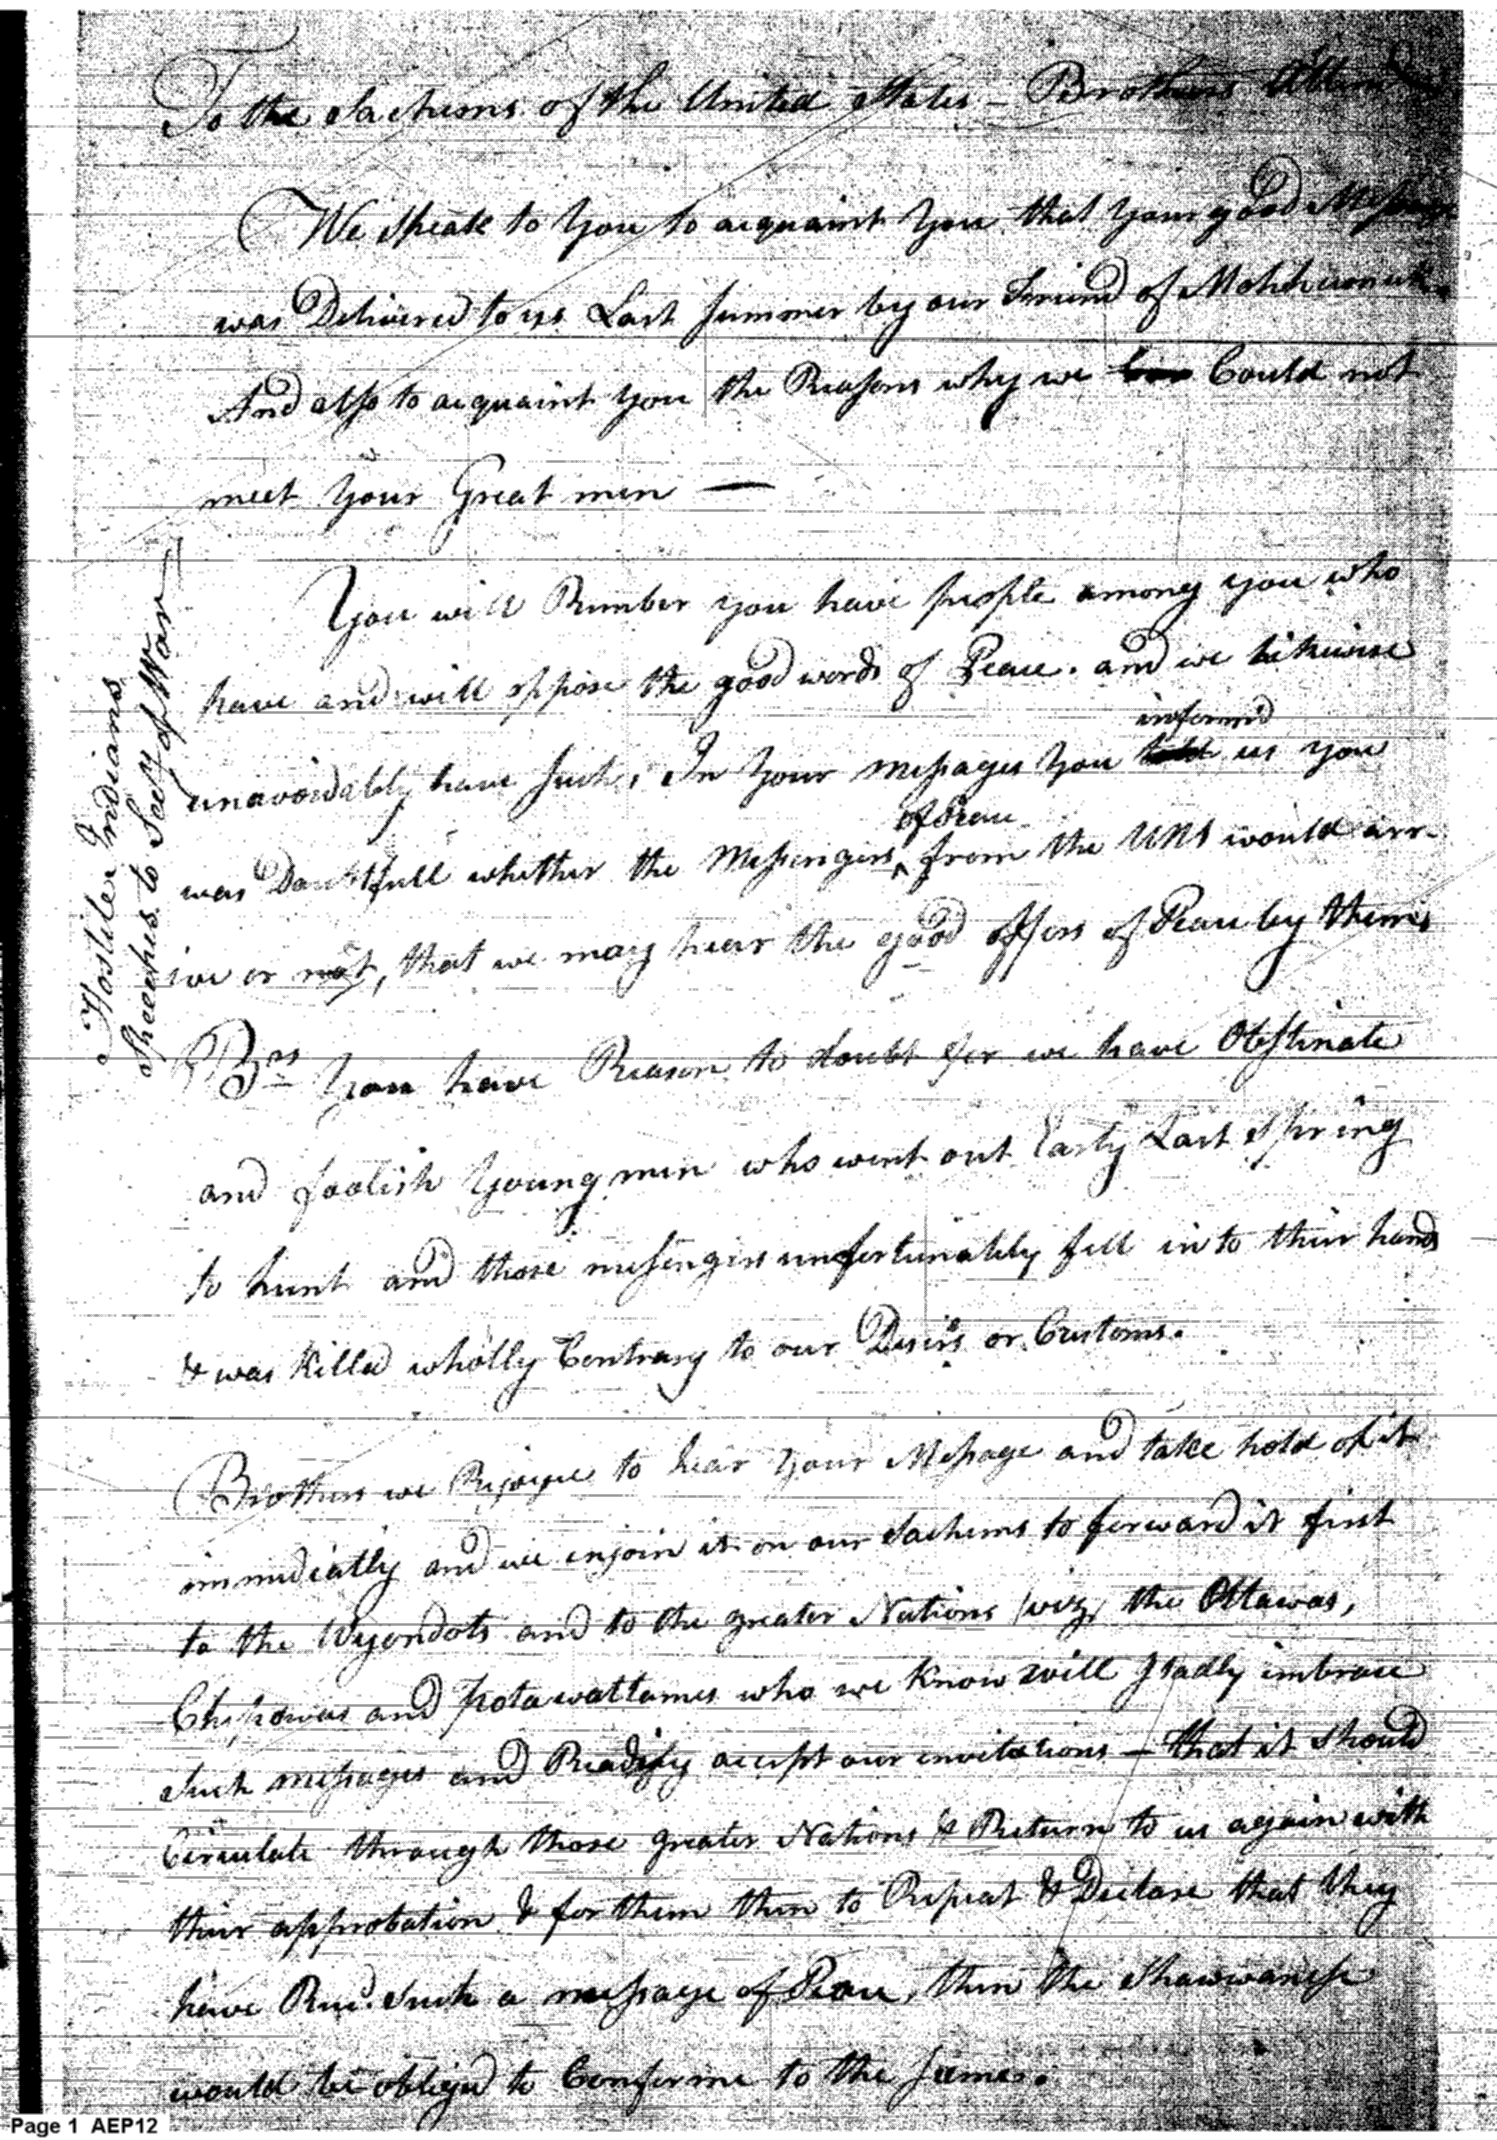 To the Sachems of the United States – Brothers Attend
We Speak to You to acquaint You that Your good Message
was Delivered to us Last Summer by our Friend of
And also to acquaint You the Reasons why we Could not
meet Your Great men —
You will Rember you have people among you who
have and will oppose the good words of Peace. and we likewise
unavoidably have Such, In Your Messages You informd us you
was Doubtfull whether the Messengers of Peace from the UNS would arr-
ive or not, that we may hear the good offers of Peace by them
Brs You have Reason to doubt for we have Obstinate
and foolish Young men who went out Early Last Spring
to hunt and those mesengers unfortunately fell in to their hands
& was Killed wholly Contrary to our Desires or Customs.
Brothers we Rejoyce to hear Your Message and take hold of it
immediatly and we enjoin it on our Sachems to forward it first
to the Wyondots and to the greater Nations (viz, the Ottawas,
Chipowas and potawattames who we Know will gladly imbrace
Such messages and Readily accept our invitations – that it Should
Circulate through those greater Nations & Return to us again with
their approbation & for them then to Repeat & Declare that they
have Recd. Such a message of Peace, then the Shawwanese
would be obliged to Conforme to the Same.
Hostile Indians
Speeches to Secy of War
Page 1 AEP12